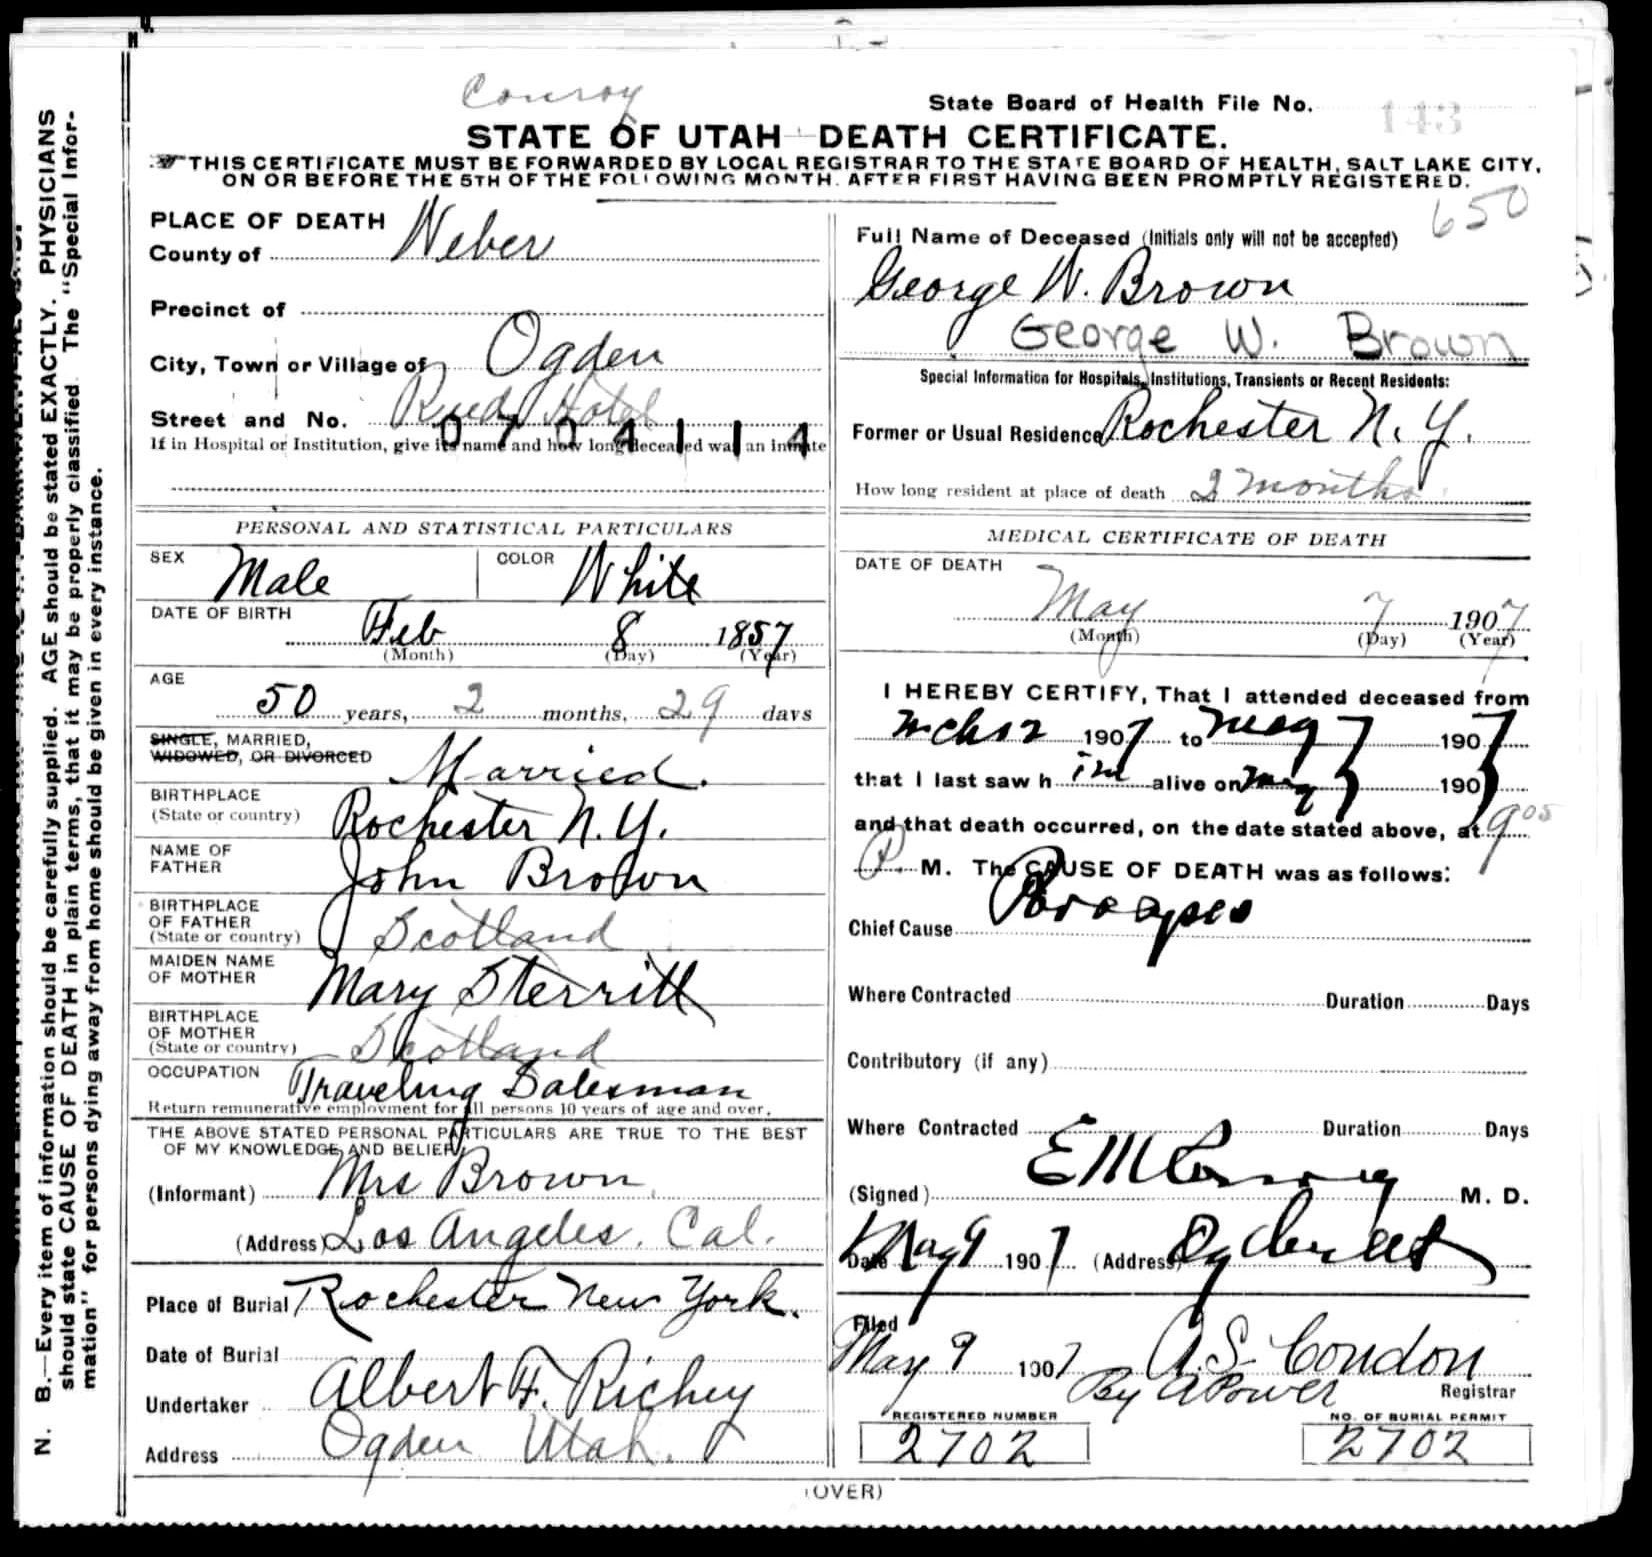 Conroy
State Board of Health File No. 143
STATE OF UTAH DEATH CERTIFICATE.
THIS CERTIFICATE MUST BE FORWARDED BY LOCAL REGISTRAR TO THE STATE BOARD OF HEALTH, SALT LAKE CITY,
ON OR BEFORE THE 5TH OF THE FOLLOWING MONTH. AFTER FIRST HAVING BEEN PROMPTLY REGISTERED.
N. B.—Every item of information should be carefully supplied. AGE should be stated EXACTLY. PHYSICIANS
should state CAUSE OF DEATH in plain terms, that it may be properly classified. The "Special Infor-
mation" for persons dying away from home should be given in every instance.
PLACE OF DEATH
County of Weber
Precinct of
City, Town or Village of Ogden
Street and No. Reed Hotel
0724114
If in Hospital or Institution, give its name and how long deceased was an inmate
PERSONAL AND STATISTICAL PARTICULARS
SEX Male COLOR White
DATE OF BIRTH
Feb 8 1857
(Month) (Day) (Year)
AGE
50 years, 2 months, 29 days
SINGLE, MARRIED,
WIDOWED, OR DIVORCED Married.
BIRTHPLACE
(State or country) Rochester N.Y.
NAME OF
FATHER John Brown
BIRTHPLACE
OF FATHER
(State or country) Scotland
MAIDEN NAME
OF MOTHER Mary Sterritt
BIRTHPLACE
OF MOTHER
(State or country) Scotland
OCCUPATION Traveling Salesman
Return remunerative employment for all persons 10 years of age and over.
THE ABOVE STATED PERSONAL PARTICULARS ARE TRUE TO THE BEST
OF MY KNOWLEDGE AND BELIEF
(Informant) Mrs Brown
(Address) Los Angeles. Cal.
Place of Burial Rochester New York.
Date of Burial
Undertaker Albert F. Richey
Address Ogden Utah.
650
Full Name of Deceased (Initials only will not be accepted)
George W. Brown
George W. Brown
Special Information for Hospitals, Institutions, Transients or Recent Residents:
Former or Usual Residence Rochester N.Y.
How long resident at place of death 2 months
MEDICAL CERTIFICATE OF DEATH
DATE OF DEATH
May 7 1907
(Month) (Day) (Year)
I HEREBY CERTIFY, That I attended deceased from
Mch 12 1907 to May 7 1907
that I last saw him alive on May 7 1907
and that death occurred, on the date stated above, at 9 05
P M. The CAUSE OF DEATH was as follows:
Chief Cause
Where Contracted Duration Days
Contributory (if any)
Where Contracted Duration Days
(Signed) E M Conroy M. D.
Date May 9 1907 (Address) Ogden Ut
Filed
May 9 1907 A. S. Condon
By A Power Registrar
REGISTERED NUMBER NO. OF BURIAL PERMIT
2702 2702
(OVER)